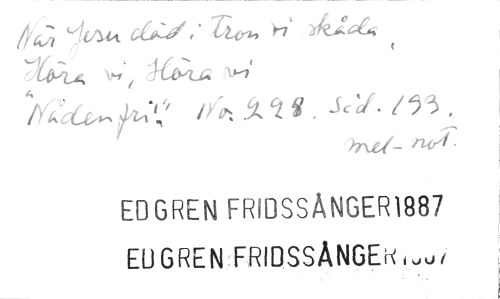 När Jesu död i tron vi skåda,
Höra vi, Höra vi
"Nåden fri!" No. 228. Sid. 193.
mel-not.
EDGREN FRIDSSÅNGER1887
EDGREN FRIDSSÅNGER1887